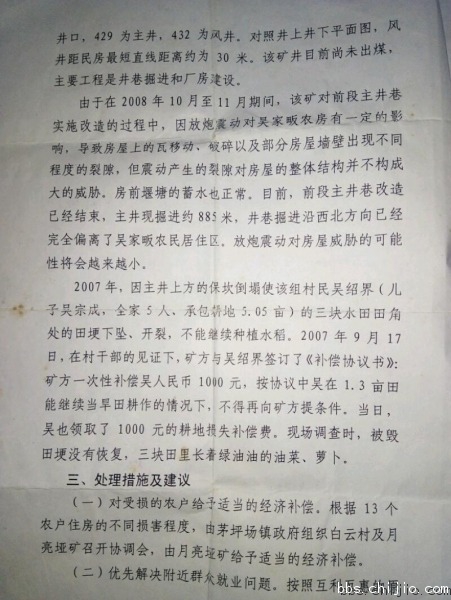 井口，429 为主井，432 为风井。对照井上井下平面图，风
井距民房最短直线距离约为 30 米。该矿井目前尚未出煤，
主要工程是井巷掘进和厂房建设。
由于在 2008 年 10 月至 11 月期间，该矿对前段主井巷
实施改造的过程中，因放炮震动对吴家畈农房有一定的影
响，导致房屋上的瓦移动、破碎以及部分房屋墙壁出现不同
程度的裂隙，但震动产生的裂隙对房屋的整体结构并不构成
大的威胁。房前堰塘的蓄水也正常。目前，前段主井巷改造
已经结束，主井现掘进约 885 米，井巷掘进沿西北方向已经
完全偏离了吴家畈农民居住区。放炮震动对房屋威胁的可能
性将会越来越小。
2007 年，因主井上方的保坎倒塌使该组村民吴绍界（儿
子吴宗成，全家 5 人、承包耕地 5.05 亩）的三块水田田角
处的田埂下坠、开裂，不能继续种植水稻。2007 年 9 月 17
日，在村干部的见证下，矿方与吴绍界签订了《补偿协议书》：
矿方一次性补偿吴人民币 1000 元，按协议中吴在 1.3 亩田
能继续当旱田耕作的情况下，不得再向矿方提条件。当日，
吴也领取了 1000 元的耕地损失补偿费。现场调查时，被毁
田埂没有恢复，三块田里长着绿油油的油菜、萝卜。
三、处理措施及建议
（一）对受损的农户给予适当的经济补偿。根据 13 个
农户住房的不同损害程度，由茅坪场镇政府组织白云村及月
亮垭矿召开协调会，由月亮垭矿给予适当的经济补偿。
（二）优先解决附近群众就业问题。按照互利互惠
bbs.chijio.com